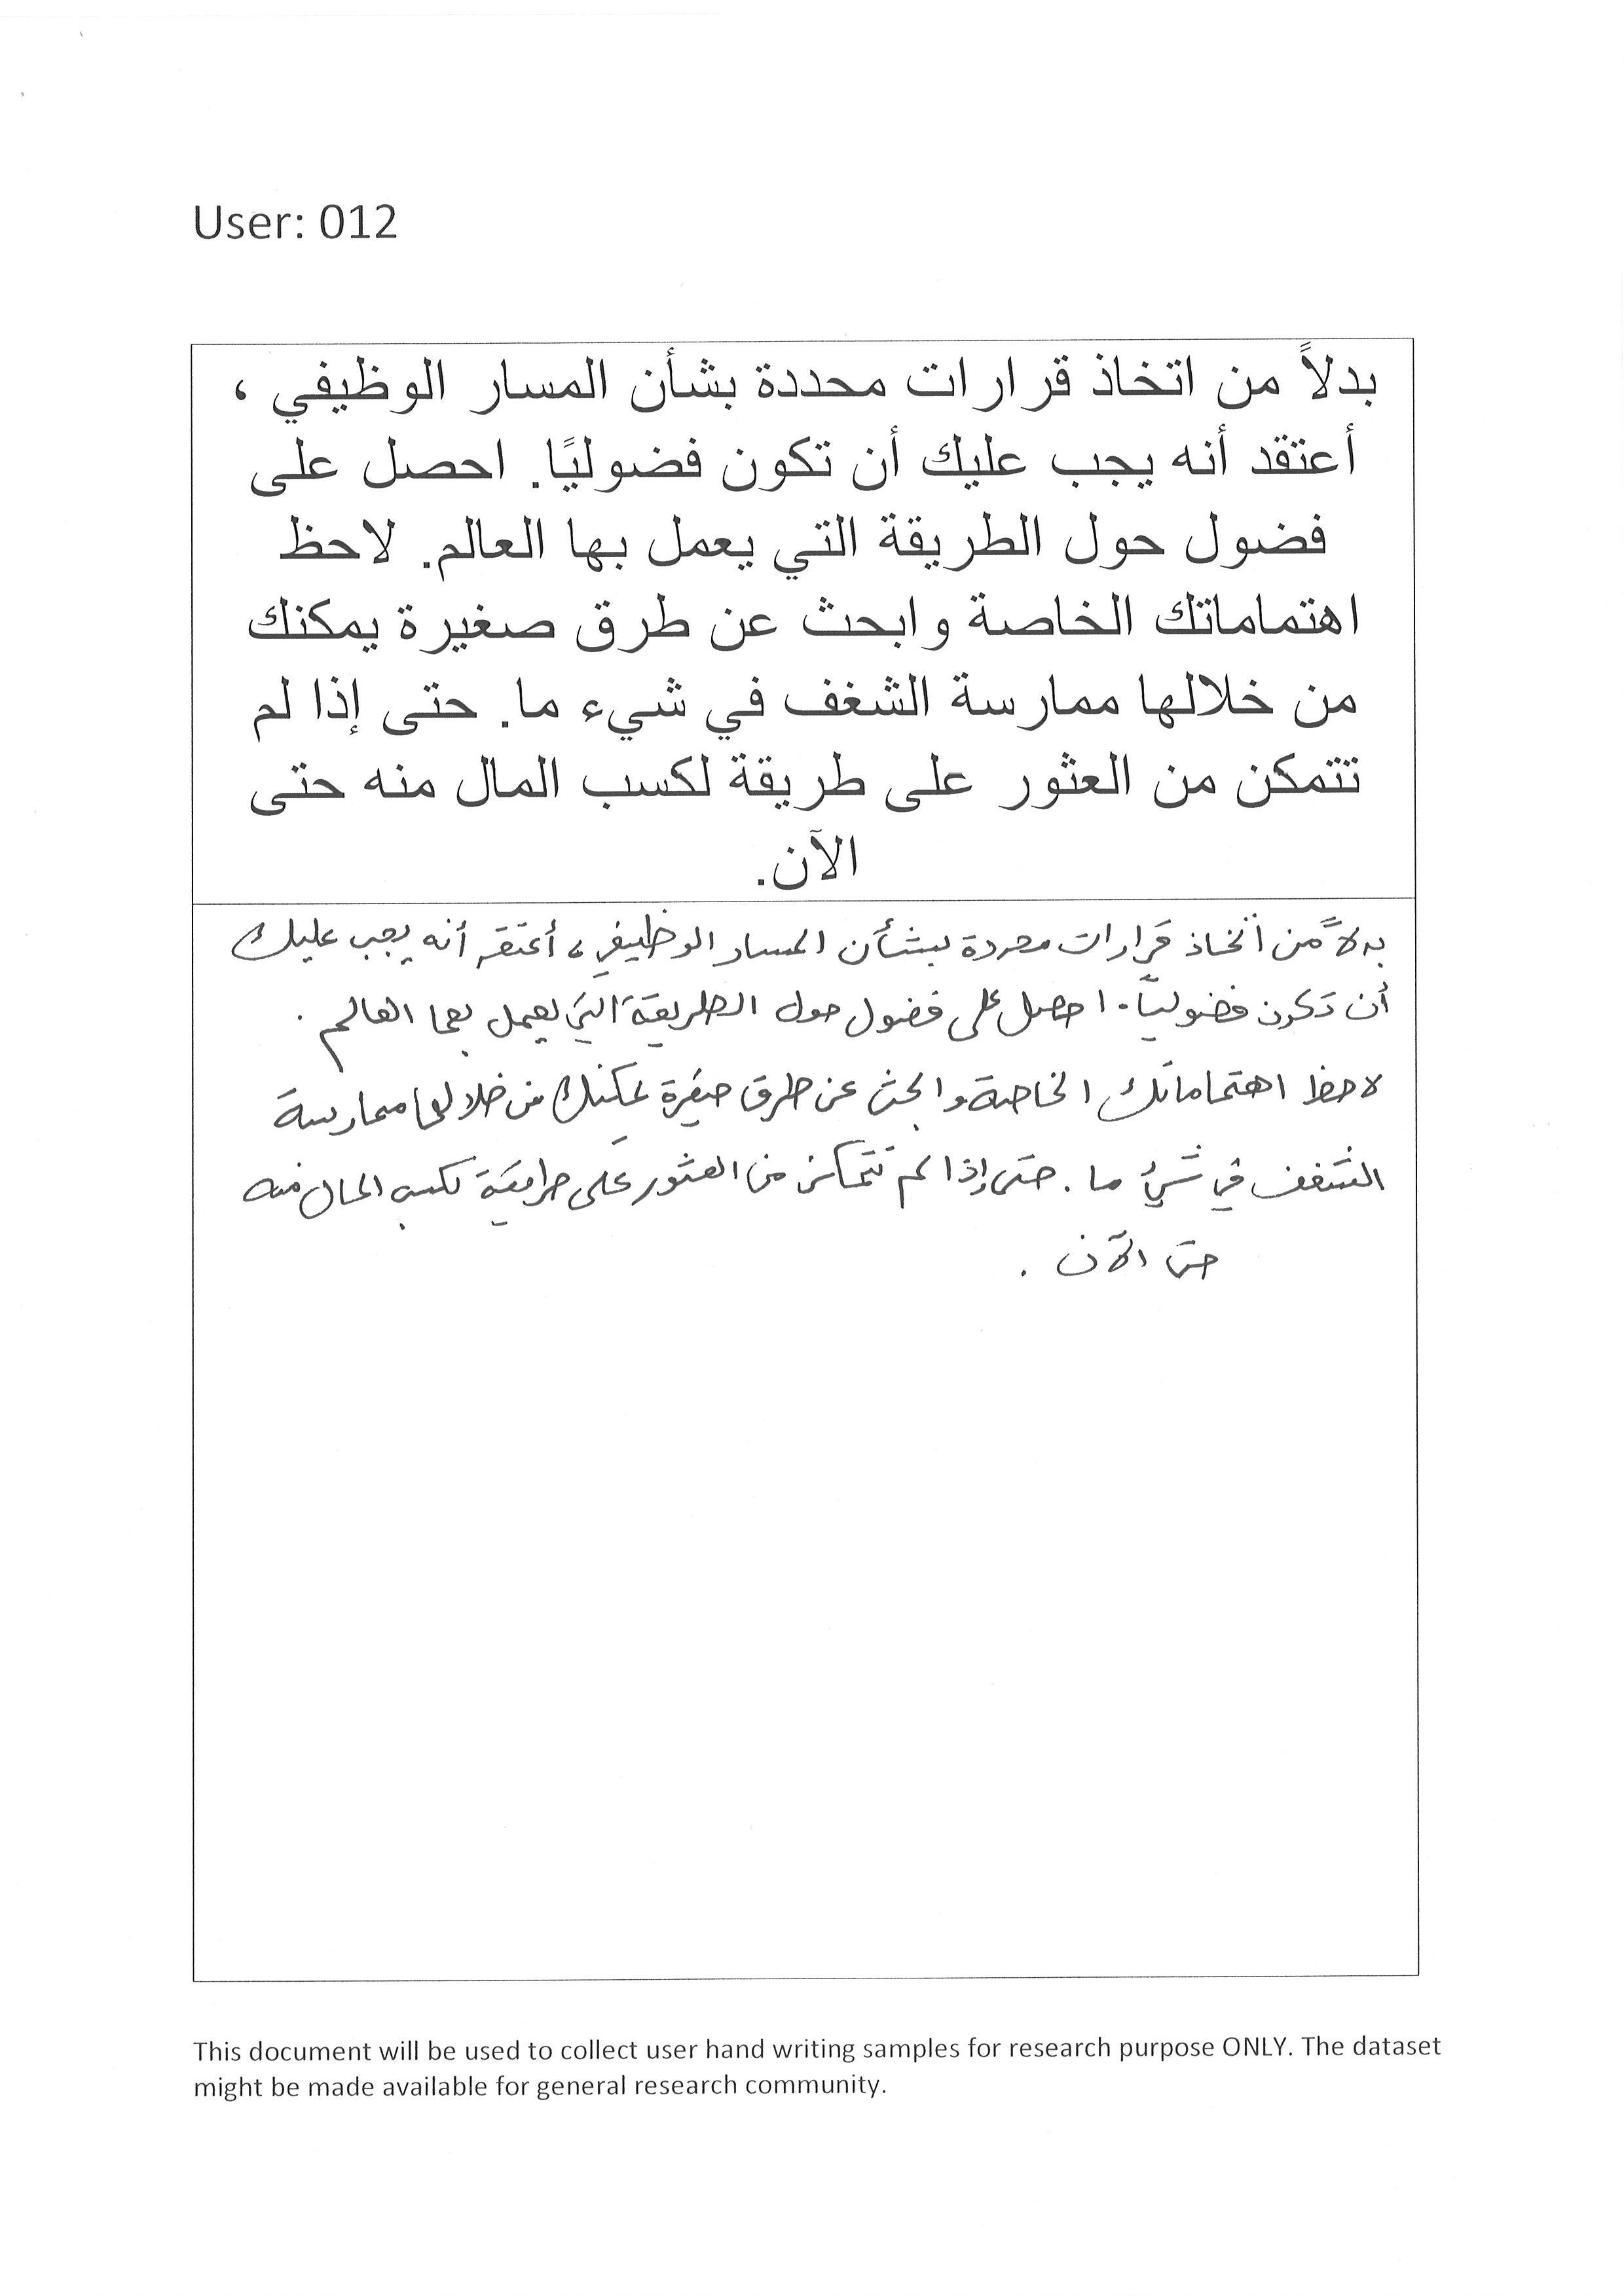 User: 012
بدلاً من اتخاذ قرارات محددة بشأن المسار الوظيفي ،
أعتقد أنه يجب عليك أن تكون فضوليًا. احصل على
فضول حول الطريقة التي يعمل بها العالم. لاحظ
اهتماماتك الخاصة وابحث عن طرق صغيرة يمكنك
من خلالها ممارسة الشغف في شيء ما. حتى إذا لم
تتمكن من العثور على طريقة لكسب المال منه حتى
الآن.
بدلاً من اتخاذ قرارات محددة بشأن المسار الوظيفي ، أعتقد أنه يجب عليك
أن تكون فضولياً. احصل على فضول حول الطريقة التي يعمل بها العالم .
لاحظ اهتماماتك الخاصة وابحث عن طرق صغيرة يمكنك من خلالها ممارسة
الشغف في شيء ما . حتى إذا لم تتمكن من العثور على طريقة لكسب المال منه
حتى الآن .
This document will be used to collect user hand writing samples for research purpose ONLY. The dataset
might be made available for general research community.